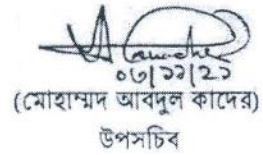 ০৩/১১/২১
(মোহাম্মদ আবদুল কাদের)
উপসচিব